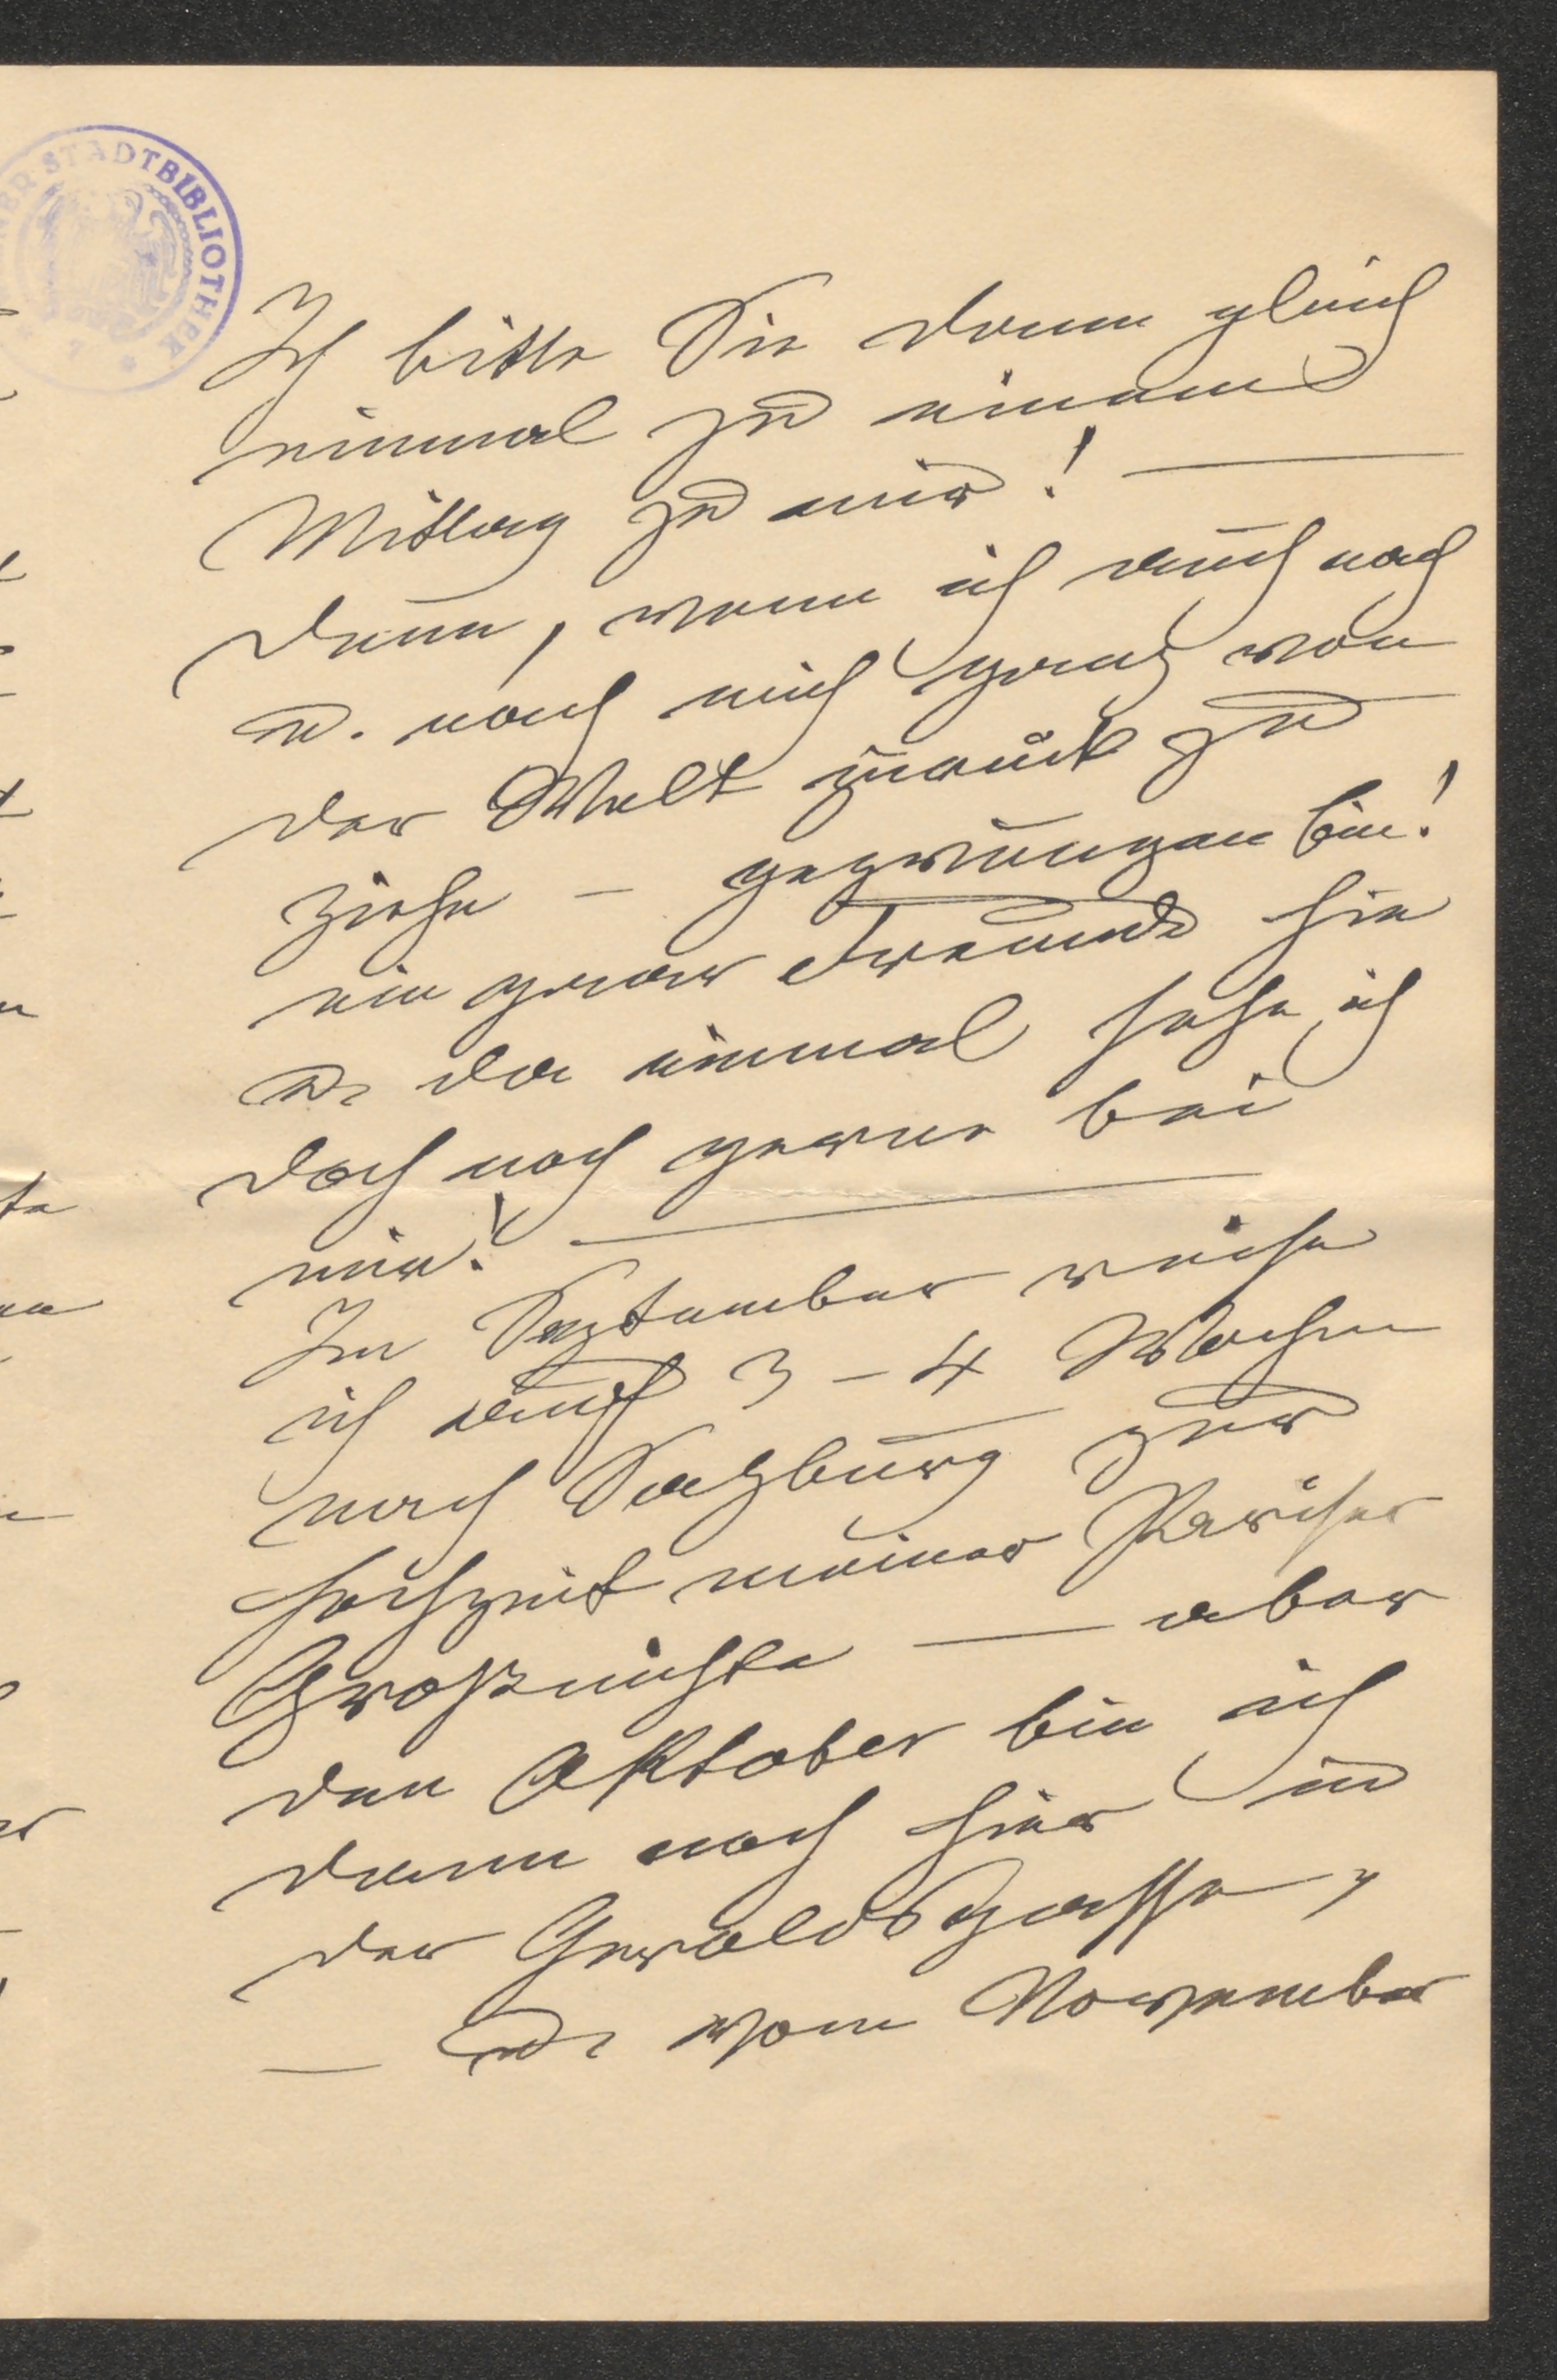 STADTBIBLIOTHEK
Ich bitte Sie dann gleich
einmal zu einem
Mittag zu mir! —
denn, wenn ich auch nach
u. nach mich ganz von
der Welt zurück zu
ziehe – gezwungen bin!
ein paar Freunde hie
u. da einmal sehe ich
doch noch gerne bei
mir! —
Im September reise
ich auf 3 – 4 Wochen
nach Salzburg zur
Hochzeit meiner Pariser
Großnichte — aber
den Oktober bin ich
dann noch hier in
der Geroldsgasse,
— u. vom November